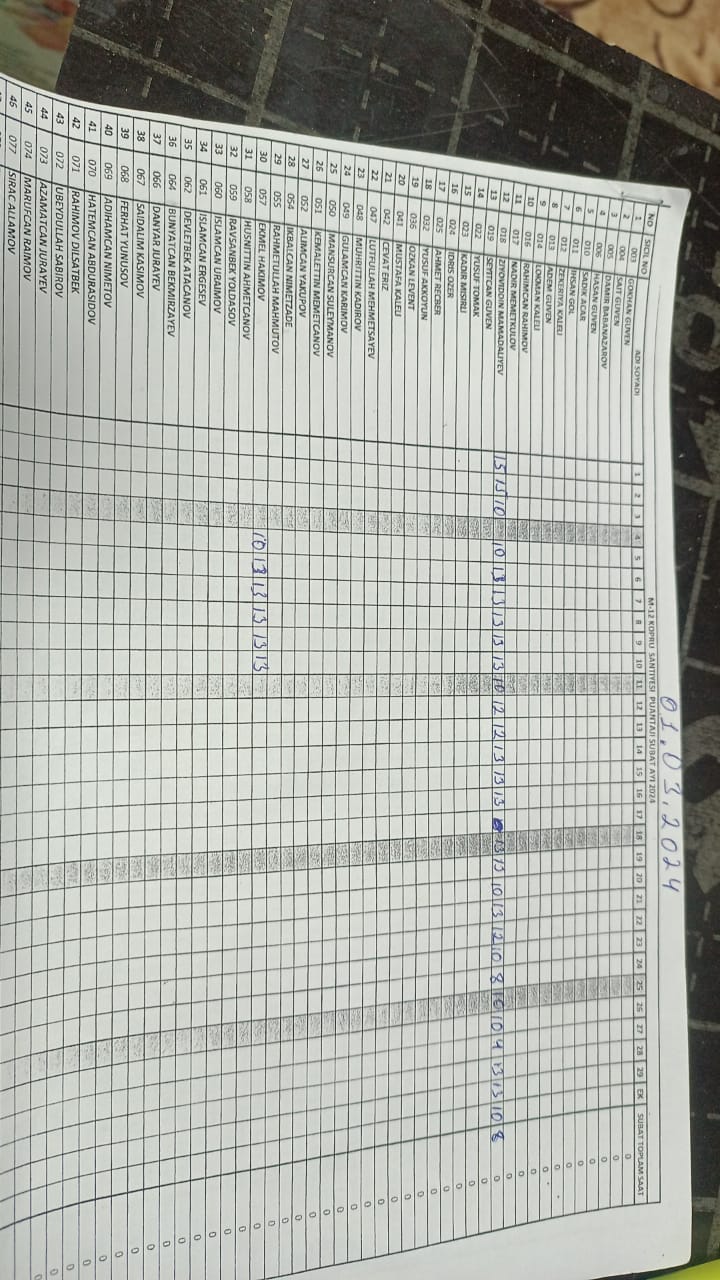 01.03.2024
M-12 KOPRU SANTIYESI PUANTAJI SUBAT AYI 2024
NO SICIL NO ADI SOYADI 1 2 3 4 5 6 7 8 9 10 11 12 13 14 15 16 17 18 19 20 21 22 23 24 25 26 27 28 29 EK SUBAT TOPLAM SAAT
1 003 GOKHAN GUVEN 0
2 004 SAIT GUVEN 0
3 005 DAMIR BABANAZAROV 0
4 006 HASAN GUVEN 0
5 010 SADIK ACAR 0
6 011 IHSAN GOL 0
7 012 ZEKERIYA KALELI 0
8 013 ADEM GUVEN 0
9 014 LOKMAN KALELI 0
10 016 RAHIMCAN RAHIMOV 0
11 017 NADIR MEMETKULOV 0
12 018 ZIYOVIDDIN MAMADALIYEV 15 15 10 10 13 13 13 13 13 10 12 12 13 13 13 13 13 10 13 12 10 8 10 10 4 13 13 10 8 0
13 019 SEYITCAN GUVEN 0
14 022 YUSUF TOMAK 0
15 023 KADIR MISIRLI 0
16 024 IDRIS OZER 0
17 025 AHMET RECBER 0
18 032 YUSUF AKKOYUN 0
19 036 OZKAN LEVENT 0
20 041 MUSTAFA KALELI 0
21 042 CEVAT ERIZ 0
22 047 LUTFULLAH MEHMETSAYEV 0
23 048 MUHRITTIN KADIROV 0
24 049 GULAMCAN KARIMOV 0
25 050 MANSURCAN SULEYMANOV 0
26 051 KEMALETTIN MEMETCANOV 0
27 052 ALIMCAN YAKUPOV 0
28 054 IKBALCAN NIMETZADE 0
29 055 RAHMETULLAH MAHMUTOV 0
30 057 EKMEL HAKIMOV 10 13 13 13 13 13 0
31 058 HUSNITTIN AHMETCANOV 0
32 059 RAVSANBEK YOLDASOV 0
33 060 ISLAMCAN URAIMOV 0
34 061 ISLAMCAN ERGESEV 0
35 062 DEVLETBEK ATACANOV 0
36 064 BUNYATCAN BEKMIRZAYEV 0
37 066 DANYAR JURAYEV 0
38 067 SAIDALIM KASIMOV 0
39 068 FERHAT YUNUSOV 0
40 069 ADIHAMCAN NIMETOV 0
41 070 HATEMCAN ABDURASIDOV 0
42 071 RAHIMOV DILSATBEK 0
43 072 UBEYDULLAH SABIROV 0
44 073 AZAMATCAN JURAYEV 0
45 074 MARUFCAN RAIMOV 0
46 077 SIRAC ALLAMOV